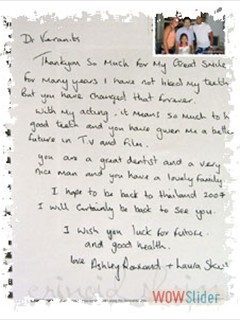 Dr
Thankyou So Much For My Great Smile
For many years I have not liked my teeth
But you have changed that forever.
With my acting, it means so much to h
good teeth and you have given me a bette
future in T.V and Film.
you are a great dentist and a very
nice man and you have a lovely family
I hope to be back to thailand 2007
I will Certainly be back to see you.
I wish you luck for future.
and good health.
love Ashley + Laura
WOWSlider